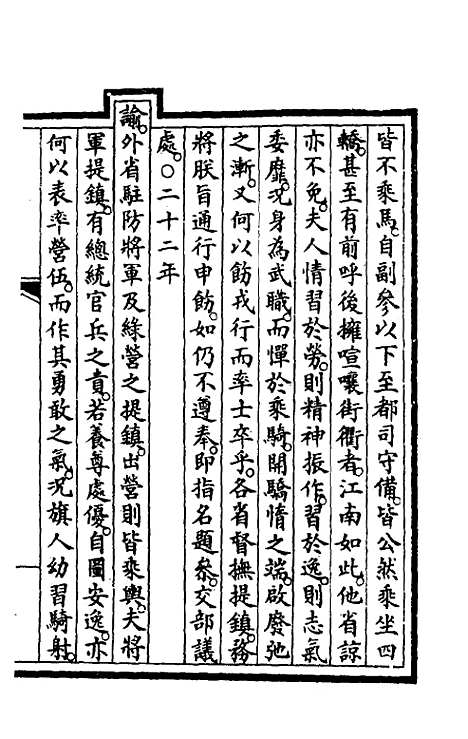 皆不乘馬。自副參以下至都司守備。皆公然乘坐四
轎。甚至有前呼後擁喧嚷街衢者。江南如此。他省諒
亦不免。夫人情習於勞。則精神振作。習於逸。則志氣
委靡。况身為武職。而憚於乘騎。開驕惰之端。啟廢弛
之漸。又何以飭戎行而率士卒乎。各省督撫提鎮。務
將朕旨通行申飭。如仍不遵奉。即指名題參。交部議
處。○二十二年
諭。外省駐防將軍及綠營之提鎮。出營則皆乘輿。夫將
軍提鎮。有總統官兵之責。若養尊處優。自圖安逸。亦
何以表率營伍。而作其勇敢之氣。况旗人幼習騎射。